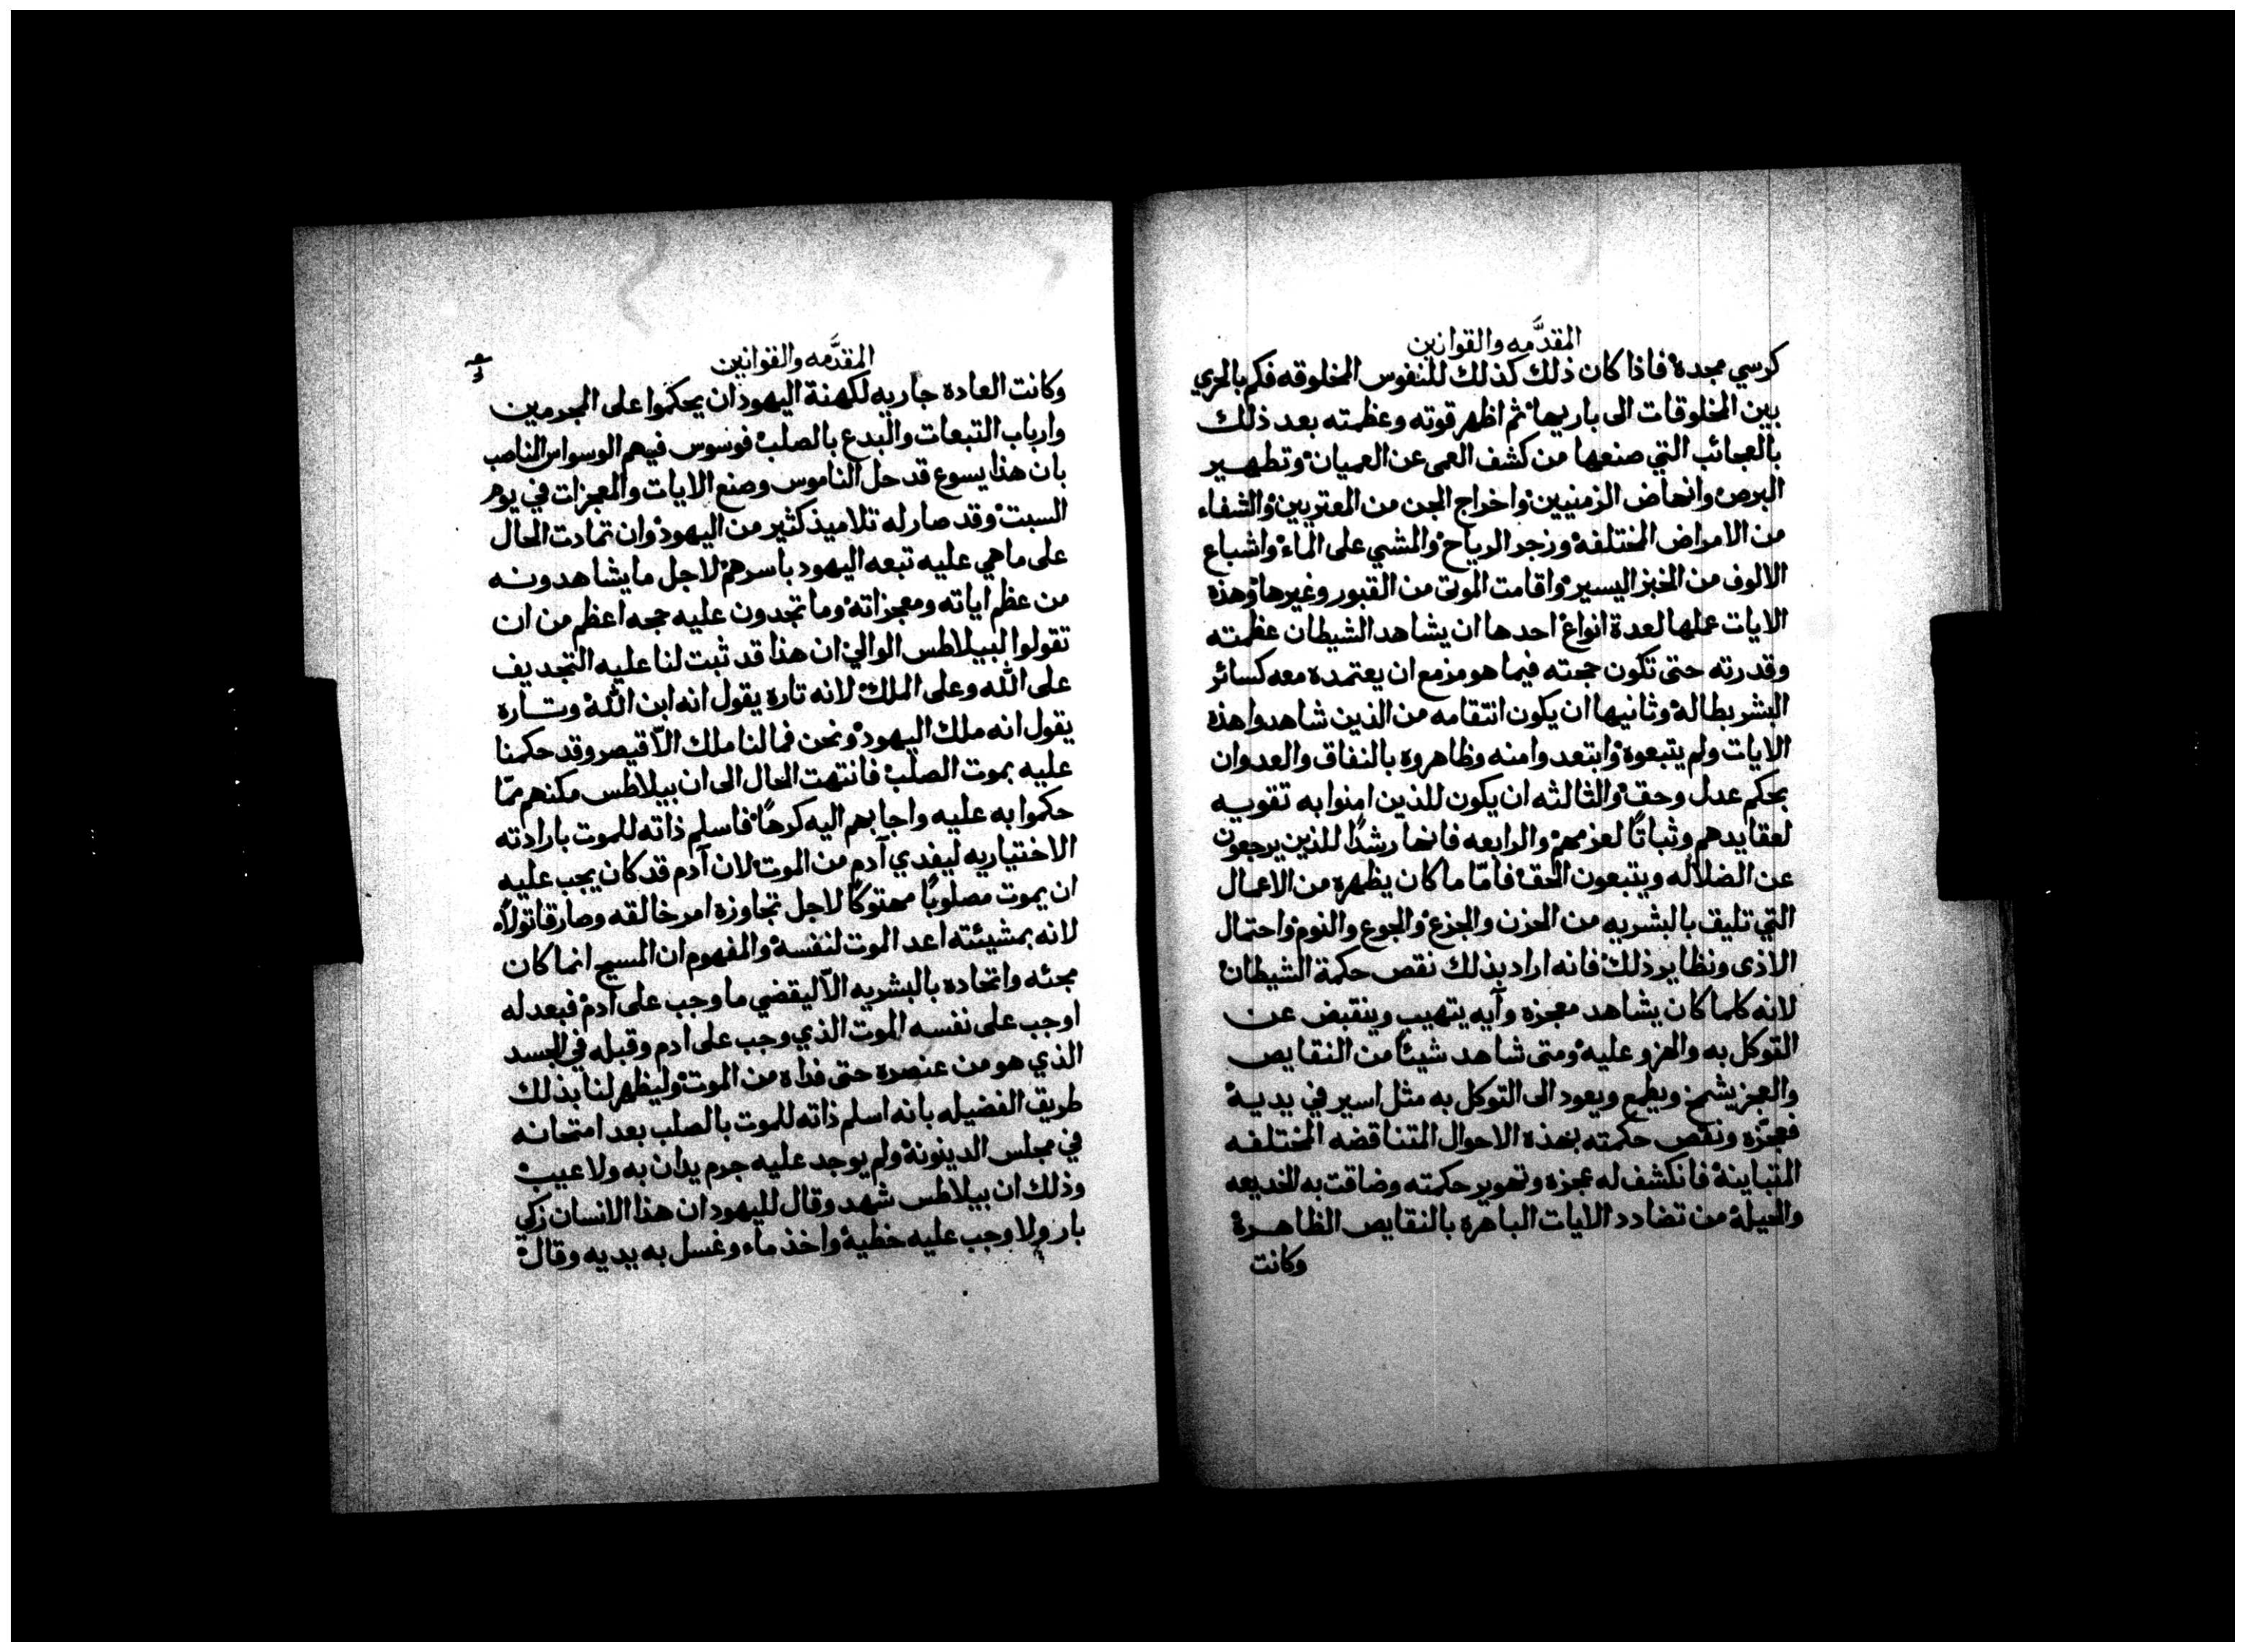 المقدَّمه والقوانين
كرسي مجده فاذا كان ذلك كذلك للنفوس المخلوقه فكم بالحري
بين المخلوقات الى باريها ثم اظهر قوته وعظمته بعد ذلك
بالعجائب التي صنعها من كشف العمى عن العميان وتطهير
البرص وانهاض الزمنيين واخراج الجن من المعتريين والشفاء
من الامراض المختلفه وزجر الرياح والمشي على الماء واشباع
الالوف من الخبز اليسير واقامت الموتى من القبور وغيرها وهذه
الايات عملها لعدة انواع احدها ان يشاهد الشيطان عظمته
وقدرته حتى تكون حجته فيما هو مزمع ان يعتمده معه كسائر
البشر بطاله وثانيها ان يكون انتقامه من الذين شاهدوا هذه
الايات ولم يتبعوه وابتعدوا منه وظاهروه بالنفاق والعدوان
بحكم عدل وحق والثالثه ان يكون للذين امنوا به تقويه
لعقايدهم وثباتًا لعزمهم والرابعه فانها رشدًا للذين يرجعون
عن الضلاله ويتبعون الحق فامّا ما كان يظهره من الاعمال
التي تليق بالبشريه من الحزن والجزع والجوع والنوم واحتمال
الاذى ونظاير ذلك فانه اراد بذلك نقص حكمة الشيطان
لانه كلما كان يشاهد معجزه وآيه يتهيب وينقبض عن
التوكل به والهزو عليه ومتى شاهد شيئًا من النقايص
والعجز يشمخ ويطمع ويعود الى التوكل به مثل اسير في يديه
فعجّزه ونقص حكمته بهذه الاحوال المتناقضه المختلفه
المتباينه فانكشف له عجزه وتهوير حكمته وضاقت به الخديعه
والحيله من تضادد الايات الباهره بالنقايص الظاهره
وكانت
المقدَّمه والقوانين
وكانت العاده جاريه لكهنة اليهود ان يحكموا على المجرمين
وارباب التبعات والبدع بالصلب فوسوس فيهم الوسواس الناصب
بان هذا يسوع قد حل الناموس وصنع الايات والمعجزات في يوم
السبت وقد صار له تلاميذ كثير من اليهود وان تمادت الحال
على ما هي عليه تبعه اليهود باسرهم لاجل ما يشاهدونه
من عظم اياته ومعجزاته وما تجدون عليه حجه اعظم من ان
تقولوا لبيلاطس الوالي ان هذا قد ثبت لنا عليه التجديف
على الله وعلى الملك لانه تاره يقول انه ابن الله وتاره
يقول انه ملك اليهود ونحن فما لنا ملك الّا قيصر وقد حكمنا
عليه بموت الصلب فانتهت الحال الى ان بيلاطس مكنهم ممّا
حكموا به عليه واجابهم اليه كرهًا فاسلم ذاته للموت بارادته
الاختياريه ليفدي آدم من الموت لان آدم قد كان يجب عليه
ان يموت مصلوبًا مهتوكًا لاجل تجاوزه امر خالقه وصار قاتولاً
لانه بمشيئته اعد الموت لنفسه والمفهوم ان المسيح انما كان
مجئه واتحاده بالبشريه الّا ليقضي ما وجب على ادم فبعدله
اوجب على نفسه الموت الذي وجب على ادم وقبله في الجسد
الذي هو من عنصره حتى فداه من الموت وليظهر لنا بذلك
طريق الفضيله بانه اسلم ذاته للموت بالصلب بعد امتحانه
في مجلس الدينونه ولم يوجد عليه جرم يدان به ولا عيب
وذلك ان بيلاطس شهد وقال لليهود ان هذا الانسان زكي
بار ولا وجب عليه خطيه واخذ ماء وغسل به يديه وقال